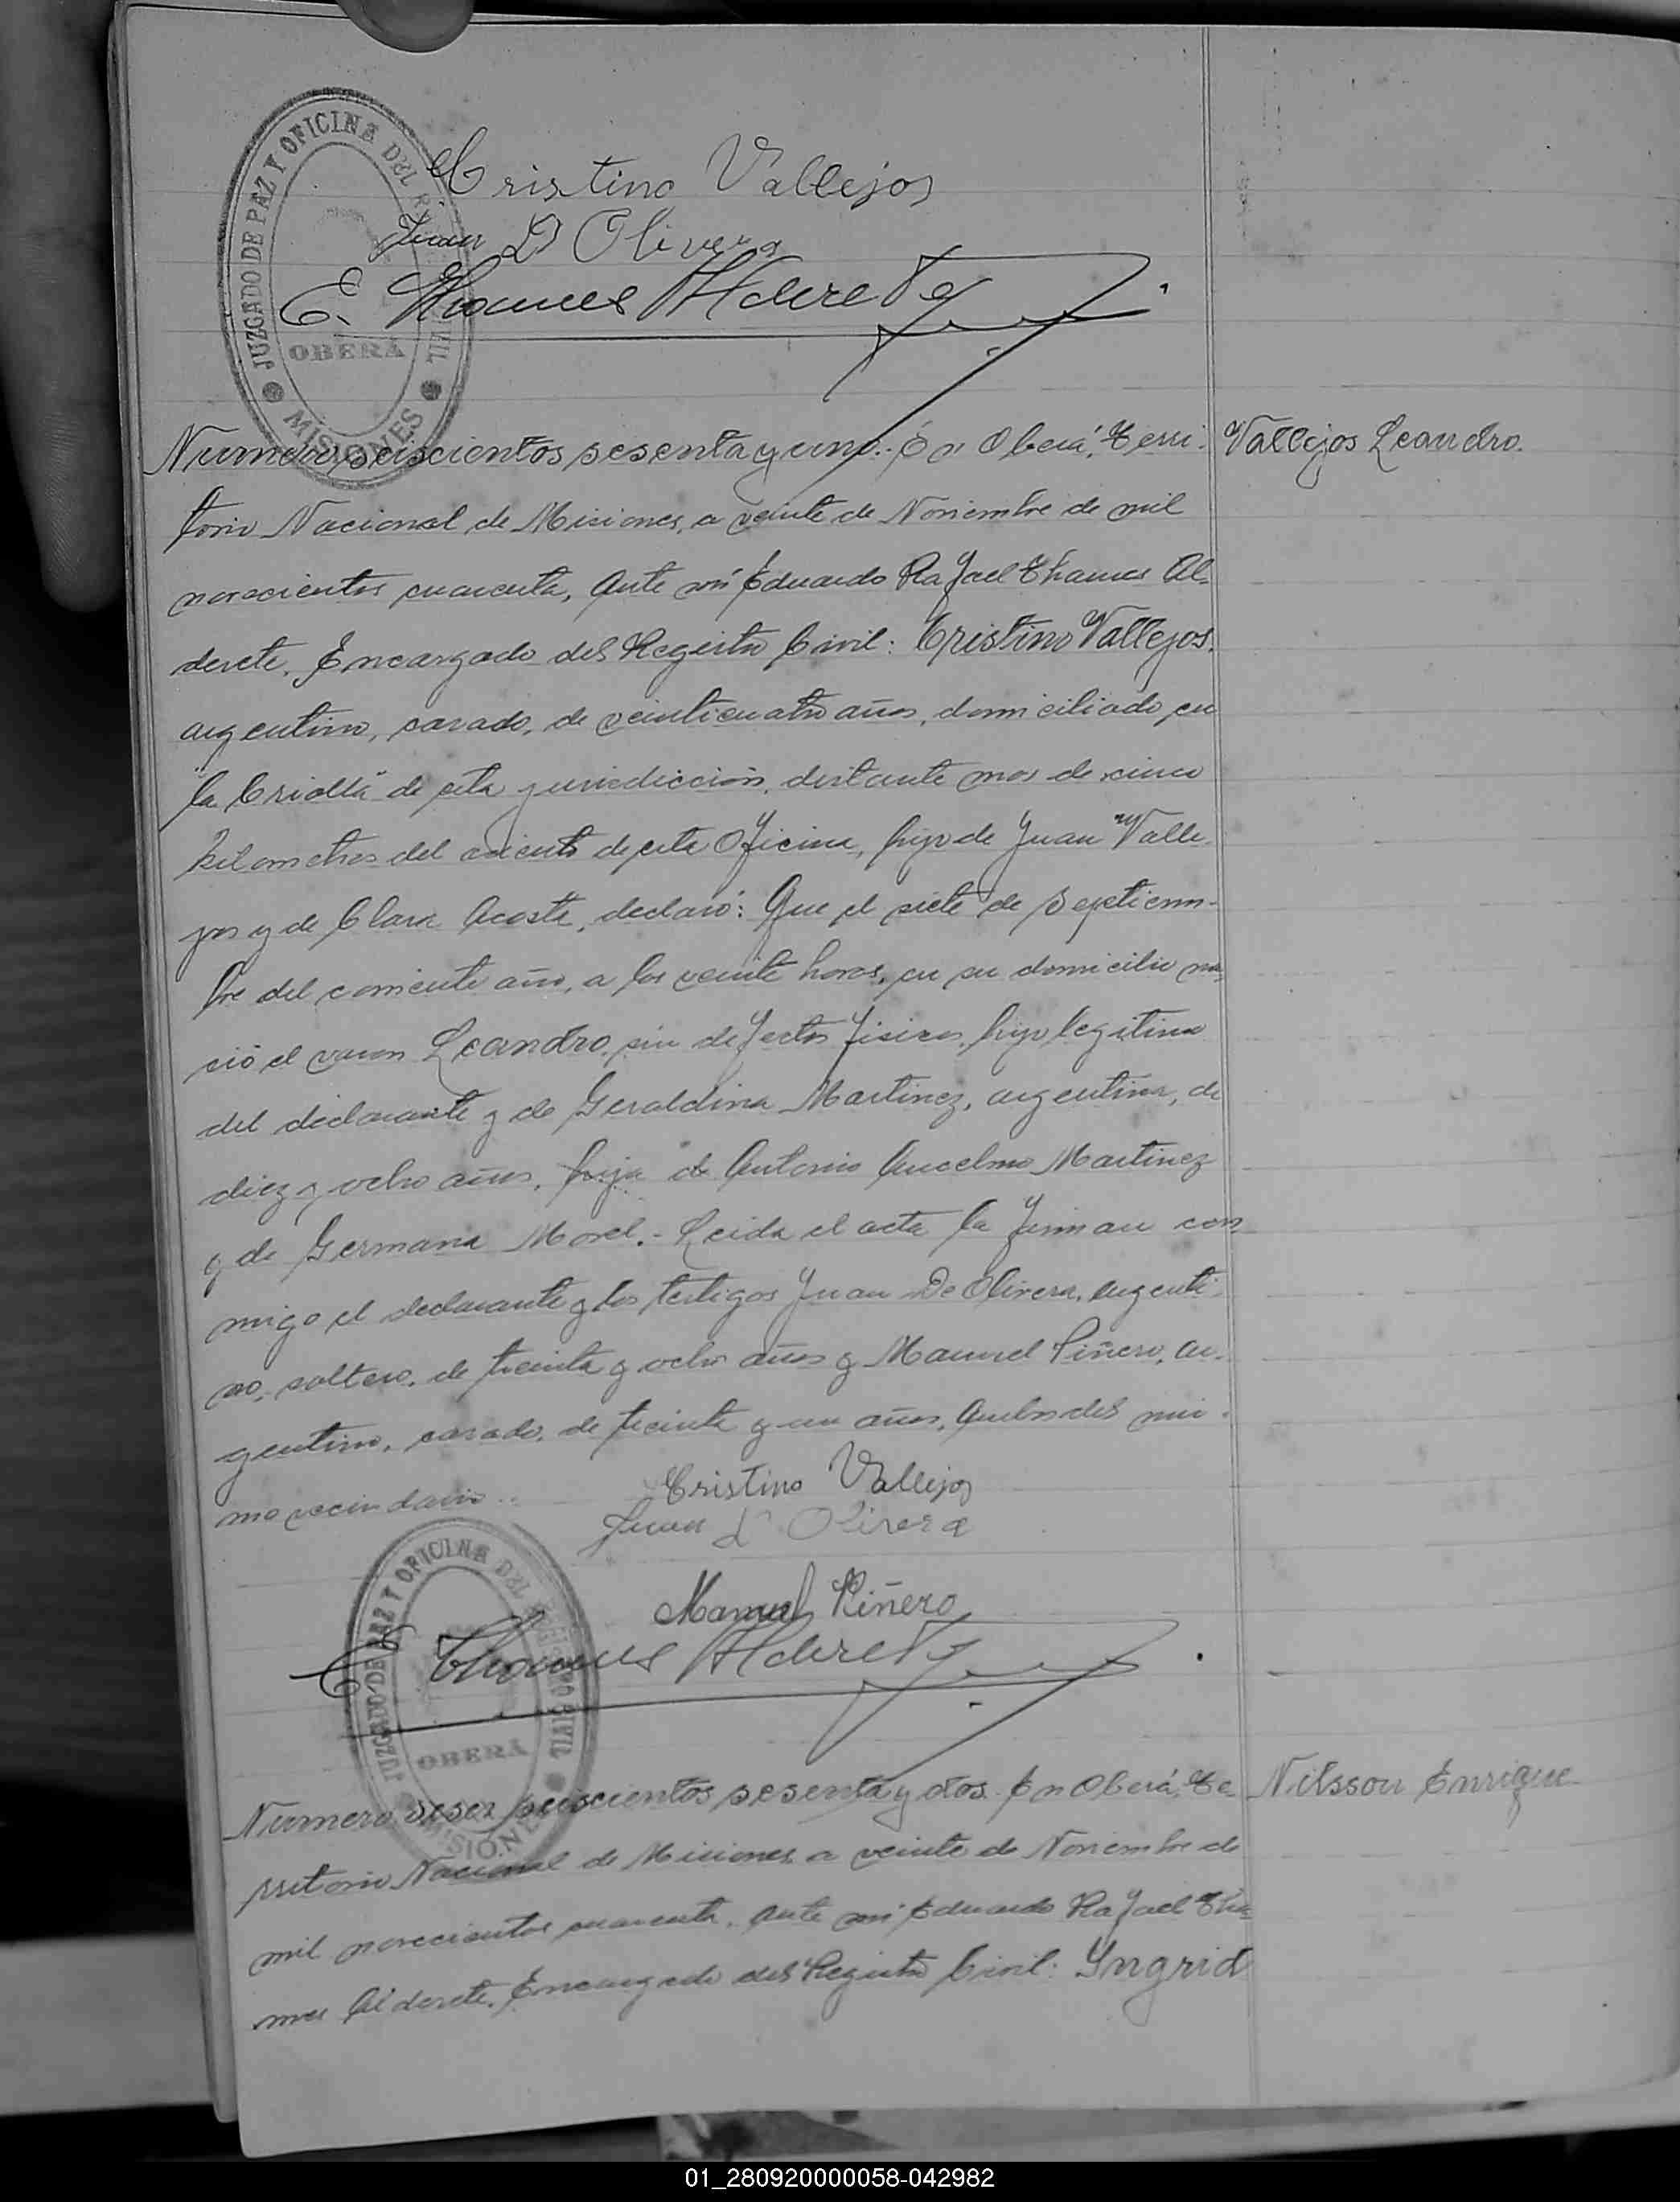 JUZGADO DE PAZ Y OFICINA DEL REGISTRO CIVIL
OBERÁ
MISIONES
Cristino Vallejos
Juan D Olivera
E. Thames Alderete
Numero seiscientos sesenta y uno.- En Oberá, Terri-
Vallejos Leandro.
torio Nacional de Misiones, a veinte de Noviembre de mil
novecientos cuarenta, ante mí Eduardo Rafael Thames Al-
derete, Encargado del Registro Civil: Cristino Vallejos,
argentino, casado, de veinticuatro años, domiciliado en
"la Criolla" de esta jurisdicción, distante mas de cinco
kilometros del asiento de esta Oficina, hijo de Juan Valle-
jos y de Clara Acosta, declaró: Que el siete de Septiem-
bre del corriente año, a las veinte horas, en su domicilio na-
ció el varon Leandro, sin defectos fisicos, hijo legitimo
del declarante y de Geraldina Martinez, argentina, de
diez y ocho años, hija de Antonio Anselmo Martinez
y de Germana Morel.- Leida el acta la firman con-
migo el declarante y los testigos Juan De Olivera, argenti-
no, soltero, de treinta y ocho años y Manuel Piñero, ar-
gentino, casado, de treinta y un años, ambos del mis-
mo vecindario.-
Cristino Vallejos
Juan D Olivera
Manuel Piñero
E Thames Alderete
JUZGADO DE PAZ Y OFICINA DEL REGISTRO CIVIL
OBERÁ
MISIONES
Numero seiscientos sesenta y dos. En Oberá, Te-
Nilsson Enrique
rritorio Nacional de Misiones a veinte de Noviembre de
mil novecientos cuarenta, ante mí Eduardo Rafael Tha-
mes Alderete, Encargado del Registro Civil: Yngrid
01_280920000058-042982